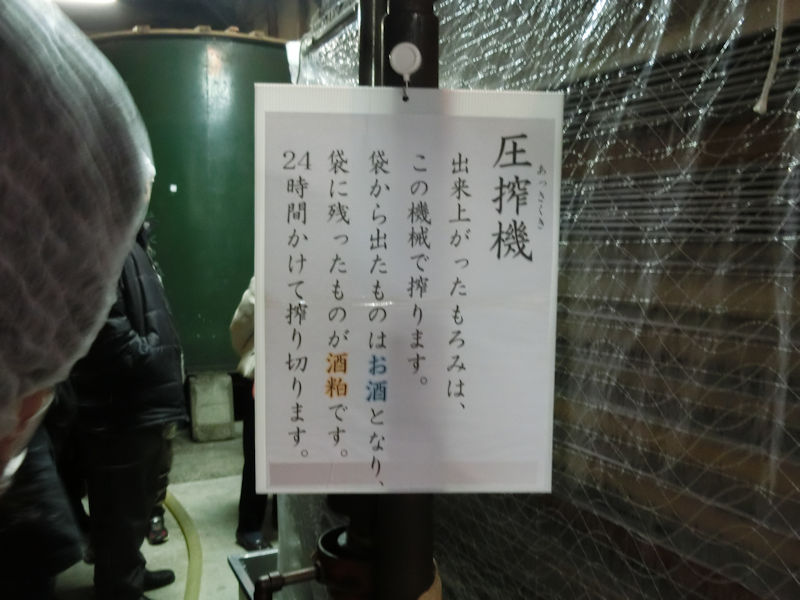 圧搾機
あっさくき
出来上がったもろみは、
この機械で搾ります。
袋から出たものはお酒となり、
袋に残ったものが酒粕です。
24時間かけて搾り切ります。